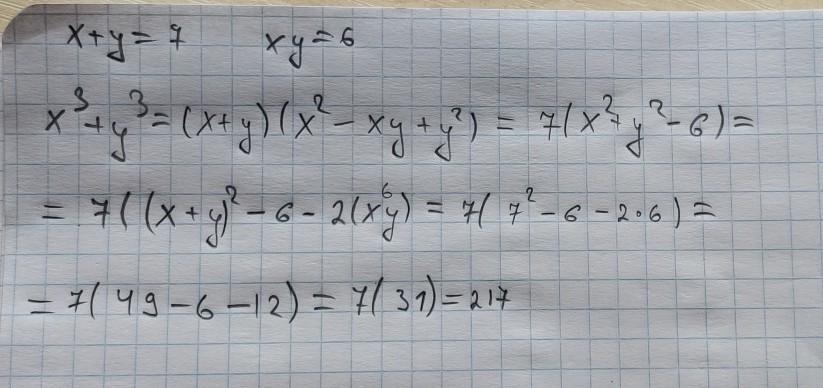 x+y=7 xy=6
x³+y³=(x+y)(x²-xy+y²)=7(x²+y²-6)=
=7((x+y)²-6-2(xy)⁶=7(7²-6-2·6)=
=7(49-6-12)=7(31)=217